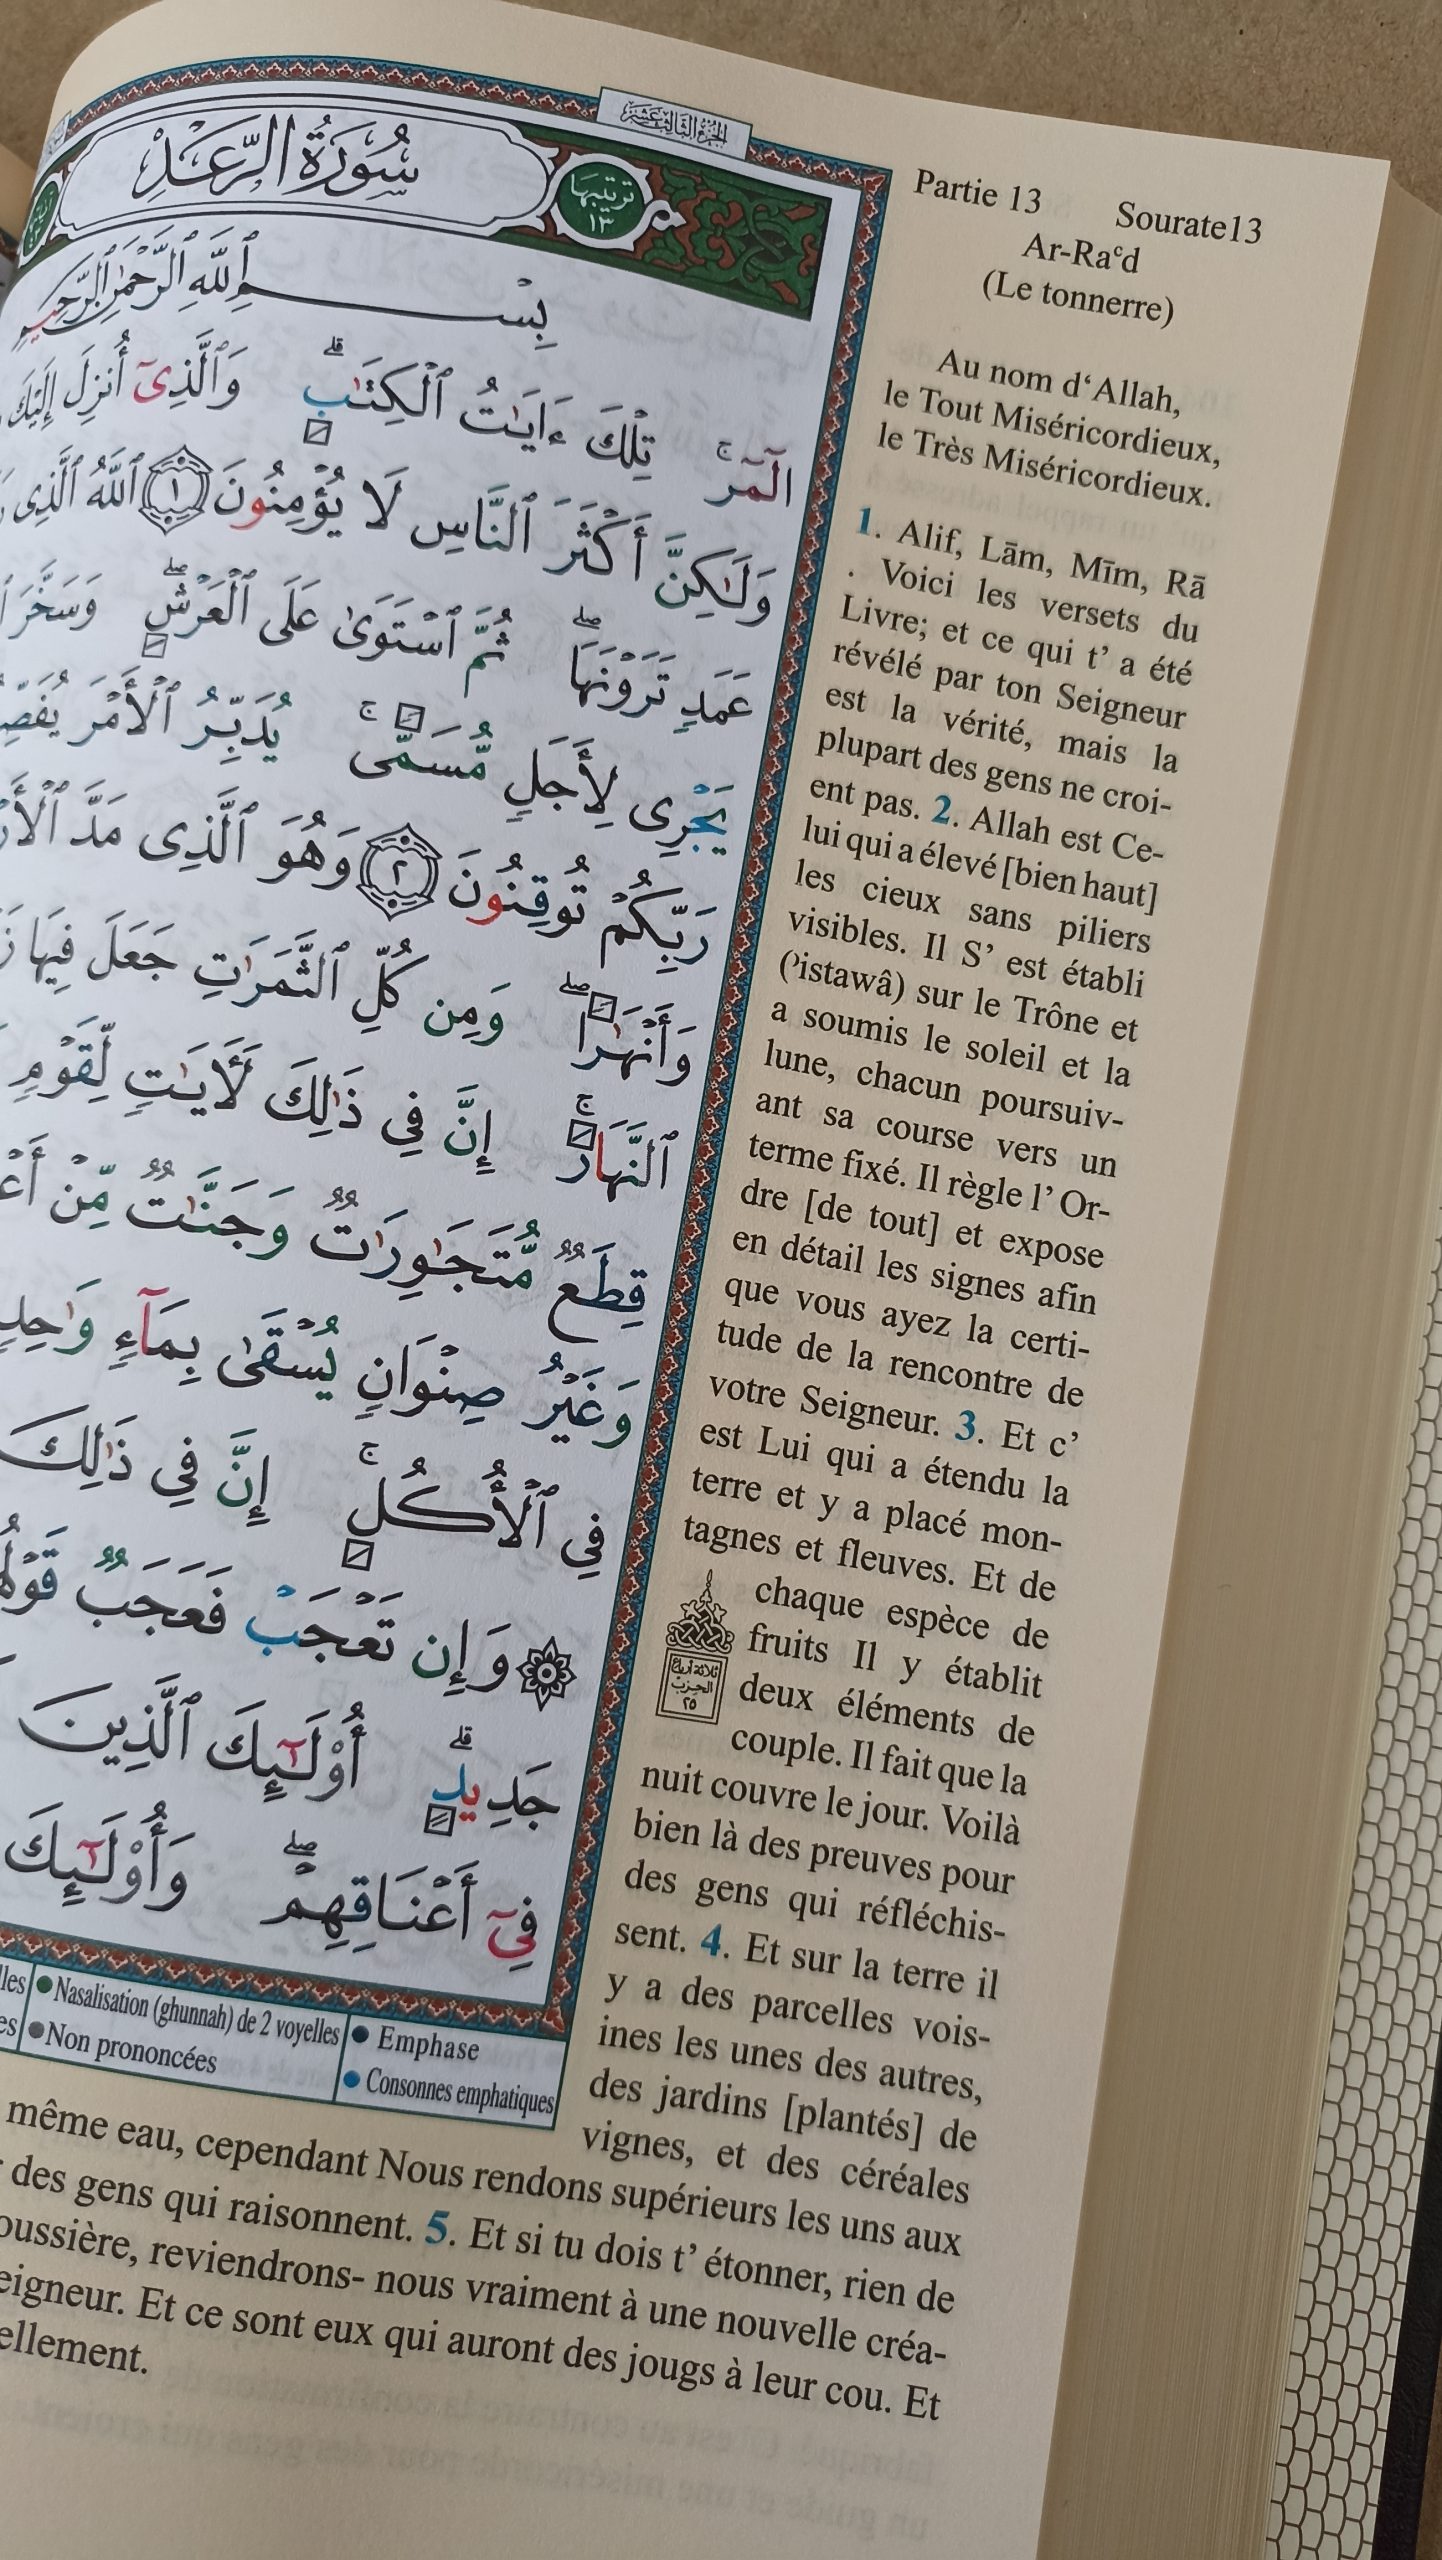 الجزء الثالث عشر
سُورَةُ الرَّعْدِ
ترتيبها
١٣
بِسْمِ ٱللَّهِ ٱلرَّحْمَٰنِ ٱلرَّحِيمِ
الٓمٓر ۚ تِلْكَ ءَايَٰتُ ٱلْكِتَٰبِ ۗ وَٱلَّذِىٓ أُنزِلَ إِلَيْكَ
وَلَٰكِنَّ أَكْثَرَ ٱلنَّاسِ لَا يُؤْمِنُونَ ١ ٱللَّهُ ٱلَّذِى
عَمَدٍ تَرَوْنَهَا ۖ ثُمَّ ٱسْتَوَىٰ عَلَى ٱلْعَرْشِ ۖ وَسَخَّرَ
يَجْرِى لِأَجَلٍ مُّسَمًّى ۚ يُدَبِّرُ ٱلْأَمْرَ
رَبِّكُمْ تُوقِنُونَ ٢ وَهُوَ ٱلَّذِى مَدَّ
وَأَنْهَٰرًا ۖ وَمِن كُلِّ ٱلثَّمَرَٰتِ جَعَلَ فِيهَا
ٱلنَّهَارَ ۚ إِنَّ فِى ذَٰلِكَ لَءَايَٰتٍ لِّقَوْمٍ
قِطَعٌ مُّتَجَٰوِرَٰتٌ وَجَنَّٰتٌ مِّنْ
وَغَيْرُ صِنْوَانٍ يُسْقَىٰ بِمَآءٍ وَٰحِدٍ
فِى ٱلْأُكُلِ ۚ إِنَّ فِى ذَٰلِكَ
۞ وَإِن تَعْجَبْ فَعَجَبٌ
جَدِيدٍ ۗ أُو۟لَٰٓئِكَ ٱلَّذِينَ
فِىٓ أَعْنَاقِهِمْ ۖ وَأُو۟لَٰٓئِكَ
Nasalisation (ghunnah) de 2 voyelles
Emphase
Non prononcées
Consonnes emphatiques
Partie 13 Sourate13
Ar-Raʿd
(Le tonnerre)
Au nom d‘Allah,
le Tout Miséricordieux,
le Très Miséricordieux.
1. Alif, Lām, Mīm, Rā
. Voici les versets du
Livre; et ce qui t’ a été
révélé par ton Seigneur
est la vérité, mais la
plupart des gens ne croi-
ent pas. 2. Allah est Ce-
lui qui a élevé [bien haut]
les cieux sans piliers
visibles. Il S’ est établi
(ʾistawâ) sur le Trône et
a soumis le soleil et la
lune, chacun poursuiv-
ant sa course vers un
terme fixé. Il règle l’ Or-
dre [de tout] et expose
en détail les signes afin
que vous ayez la certi-
tude de la rencontre de
votre Seigneur. 3. Et c’
est Lui qui a étendu la
terre et y a placé mon-
tagnes et fleuves. Et de
chaque espèce de
fruits Il y établit
deux éléments de
couple. Il fait que la
ثلاثة أرباع
الحزب
٢٥
nuit couvre le jour. Voilà
bien là des preuves pour
des gens qui réfléchis-
sent. 4. Et sur la terre il
y a des parcelles vois-
ines les unes des autres,
des jardins [plantés] de
vignes, et des céréales
même eau, cependant Nous rendons supérieurs les uns aux
des gens qui raisonnent. 5. Et si tu dois t’ étonner, rien de
reviendrons- nous vraiment à une nouvelle créa-
Et ce sont eux qui auront des jougs à leur cou. Et